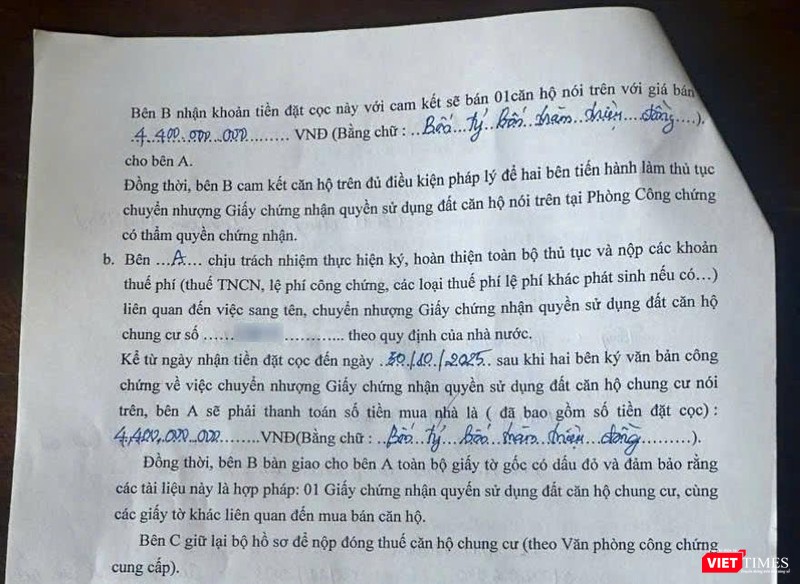 Bên B nhận khoản tiền đặt cọc này với cam kết sẽ bán 01căn hộ nói trên với giá bán
4.400.000.000......... VNĐ (Bằng chữ : ..Bốn...tỷ..bốn..trăm..triệu....đồng....),
cho bên A.
Đồng thời, bên B cam kết căn hộ trên đủ điều kiện pháp lý để hai bên tiến hành làm thủ tục
chuyển nhượng Giấy chứng nhận quyền sử dụng đất căn hộ nói trên tại Phòng Công chứng
có thẩm quyền chứng nhận.
b. Bên ...A... chịu trách nhiệm thực hiện ký, hoàn thiện toàn bộ thủ tục và nộp các khoản
thuế phí (thuế TNCN, lệ phí công chứng, các loại thuế phí lệ phí khác phát sinh nếu có…)
liên quan đến việc sang tên, chuyển nhượng Giấy chứng nhận quyền sử dụng đất căn hộ
chung cư số ...... ............ theo quy định của nhà nước.
Kể từ ngày nhận tiền đặt cọc đến ngày .30./10./.2025. sau khi hai bên ký văn bản công
chứng về việc chuyển nhượng Giấy chứng nhận quyền sử dụng đất căn hộ chung cư nói
trên, bên A sẽ phải thanh toán số tiền mua nhà là ( đã bao gồm số tiền đặt cọc) :
4.400.000.000........VNĐ(Bằng chữ : ..Bốn...tỷ...bốn...trăm...triệu...đồng.........).
Đồng thời, bên B bàn giao cho bên A toàn bộ giấy tờ gốc có dấu đỏ và đảm bảo rằng
các tài liệu này là hợp pháp: 01 Giấy chứng nhận quyền sử dụng đất căn hộ chung cư, cùng
các giấy tờ khác liên quan đến mua bán căn hộ.
Bên C giữ lại bộ hồ sơ để nộp đóng thuế căn hộ chung cư (theo Văn phòng công chứng
cung cấp).
VIETTIMES